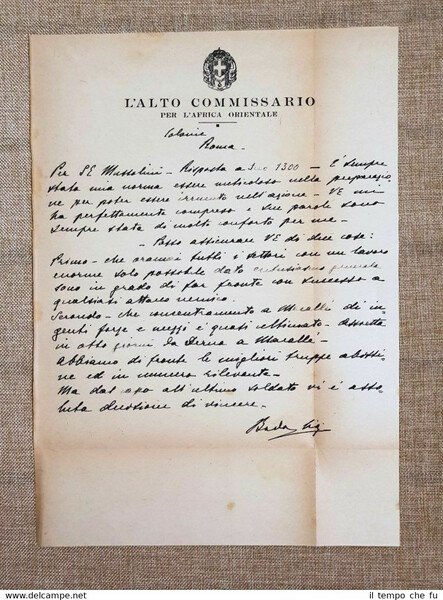 L'ALTO COMMISSARIO
PER L'AFRICA ORIENTALE
Colonie
Roma -
Per SE Mussolini - Risposta a 1300 - È sempre
stata una norma essere meticoloso nella preparazio
ne per poter essere irruento nell'azione - VE mi
ha perfettamente compreso e sue parole sono
sempre state di molto conforto per me -
- Posso assicurare VE di due cose:
Primo - che oramai tutti i settori con un lavoro
enorme solo possibile dato entusiasmo generale
sono in grado di far fronte con successo a
qualsiasi attacco nemico.
Secondo - che concentramento a Macallè di in
genti forze e mezzi è quasi ultimato -
in otto giorni da a Macallè -
Abbiamo di fronte le migliori truppe abissi
ne ed in numero rilevante -
Ma dal capo all'ultimo soldato vi è asso
luta decisione di vincere -
Badoglio
il tempo che fu